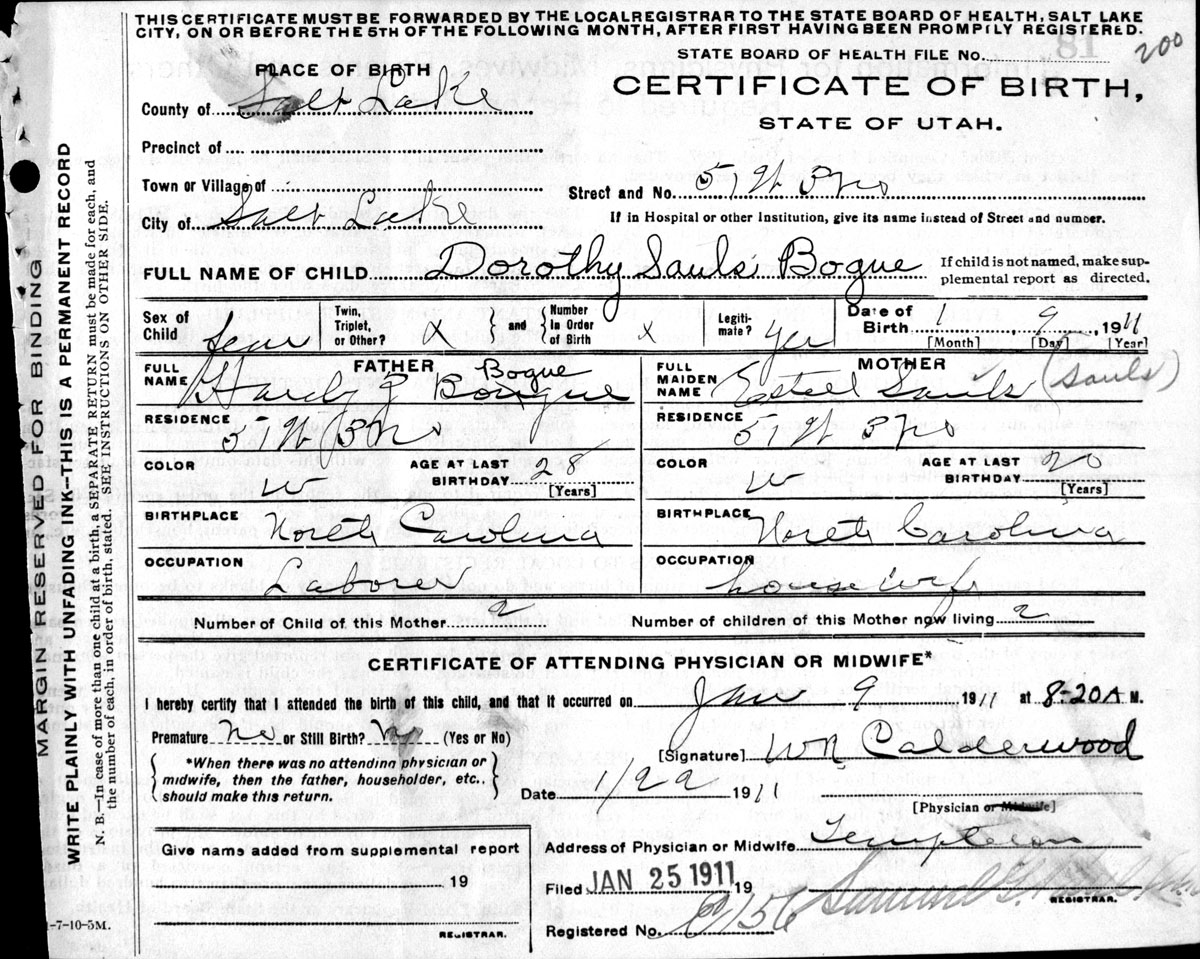 THIS CERTIFICATE MUST BE FORWARDED BY THE LOCAL REGISTRAR TO THE STATE BOARD OF HEALTH, SALT LAKE
CITY, ON OR BEFORE THE 5TH OF THE FOLLOWING MONTH, AFTER FIRST HAVING BEEN PROMPTLY REGISTERED.
200
STATE BOARD OF HEALTH FILE No.
CERTIFICATE OF BIRTH,
STATE OF UTAH.
PLACE OF BIRTH
County of Salt Lake
Precinct of
Town or Village of
Street and No.
City of Salt Lake
If in Hospital or other Institution, give its name instead of Street and number.
FULL NAME OF CHILD Dorothy Sauls Bogue
If child is not named, make sup-
plemental report as directed.
Sex of Child
Twin, Triplet, or Other? X and Number In Order of Birth X
Legiti-mate? Yes
Date of Birth 1 9 1911
[Month] [Day] [Year]
FATHER
FULL NAME Hardy J Bogue
MOTHER
FULL MAIDEN NAME Estell Sauls (Sauls)
RESIDENCE
RESIDENCE
COLOR W
AGE AT LAST BIRTHDAY 28 [Years]
COLOR W
AGE AT LAST BIRTHDAY 20 [Years]
BIRTHPLACE North Carolina
BIRTHPLACE North Carolina
OCCUPATION Laborer
OCCUPATION housewife
Number of Child of this Mother 2
Number of children of this Mother now living 2
CERTIFICATE OF ATTENDING PHYSICIAN OR MIDWIFE*
I hereby certify that I attended the birth of this child, and that it occurred on Jan 9 1911 at 8-20A M.
Premature No or Still Birth? No (Yes or No)
[Signature] WN Calderwood
*When there was no attending physician or
midwife, then the father, householder, etc.,
should make this return.
Date 1/22 1911
[Physician or Midwife]
Give name added from supplemental report
19
REGISTRAR.
Address of Physician or Midwife Templeton
Filed JAN 25 1911 19
REGISTRAR.
Registered No.
-7-10-5M.
MARGIN RESERVED FOR BINDING
WRITE PLAINLY WITH UNFADING INK--THIS IS A PERMANENT RECORD
N. B.—In case of more than one child at a birth, a SEPARATE RETURN must be made for each, and
the number of each, in order of birth, stated. SEE INSTRUCTIONS ON OTHER SIDE.